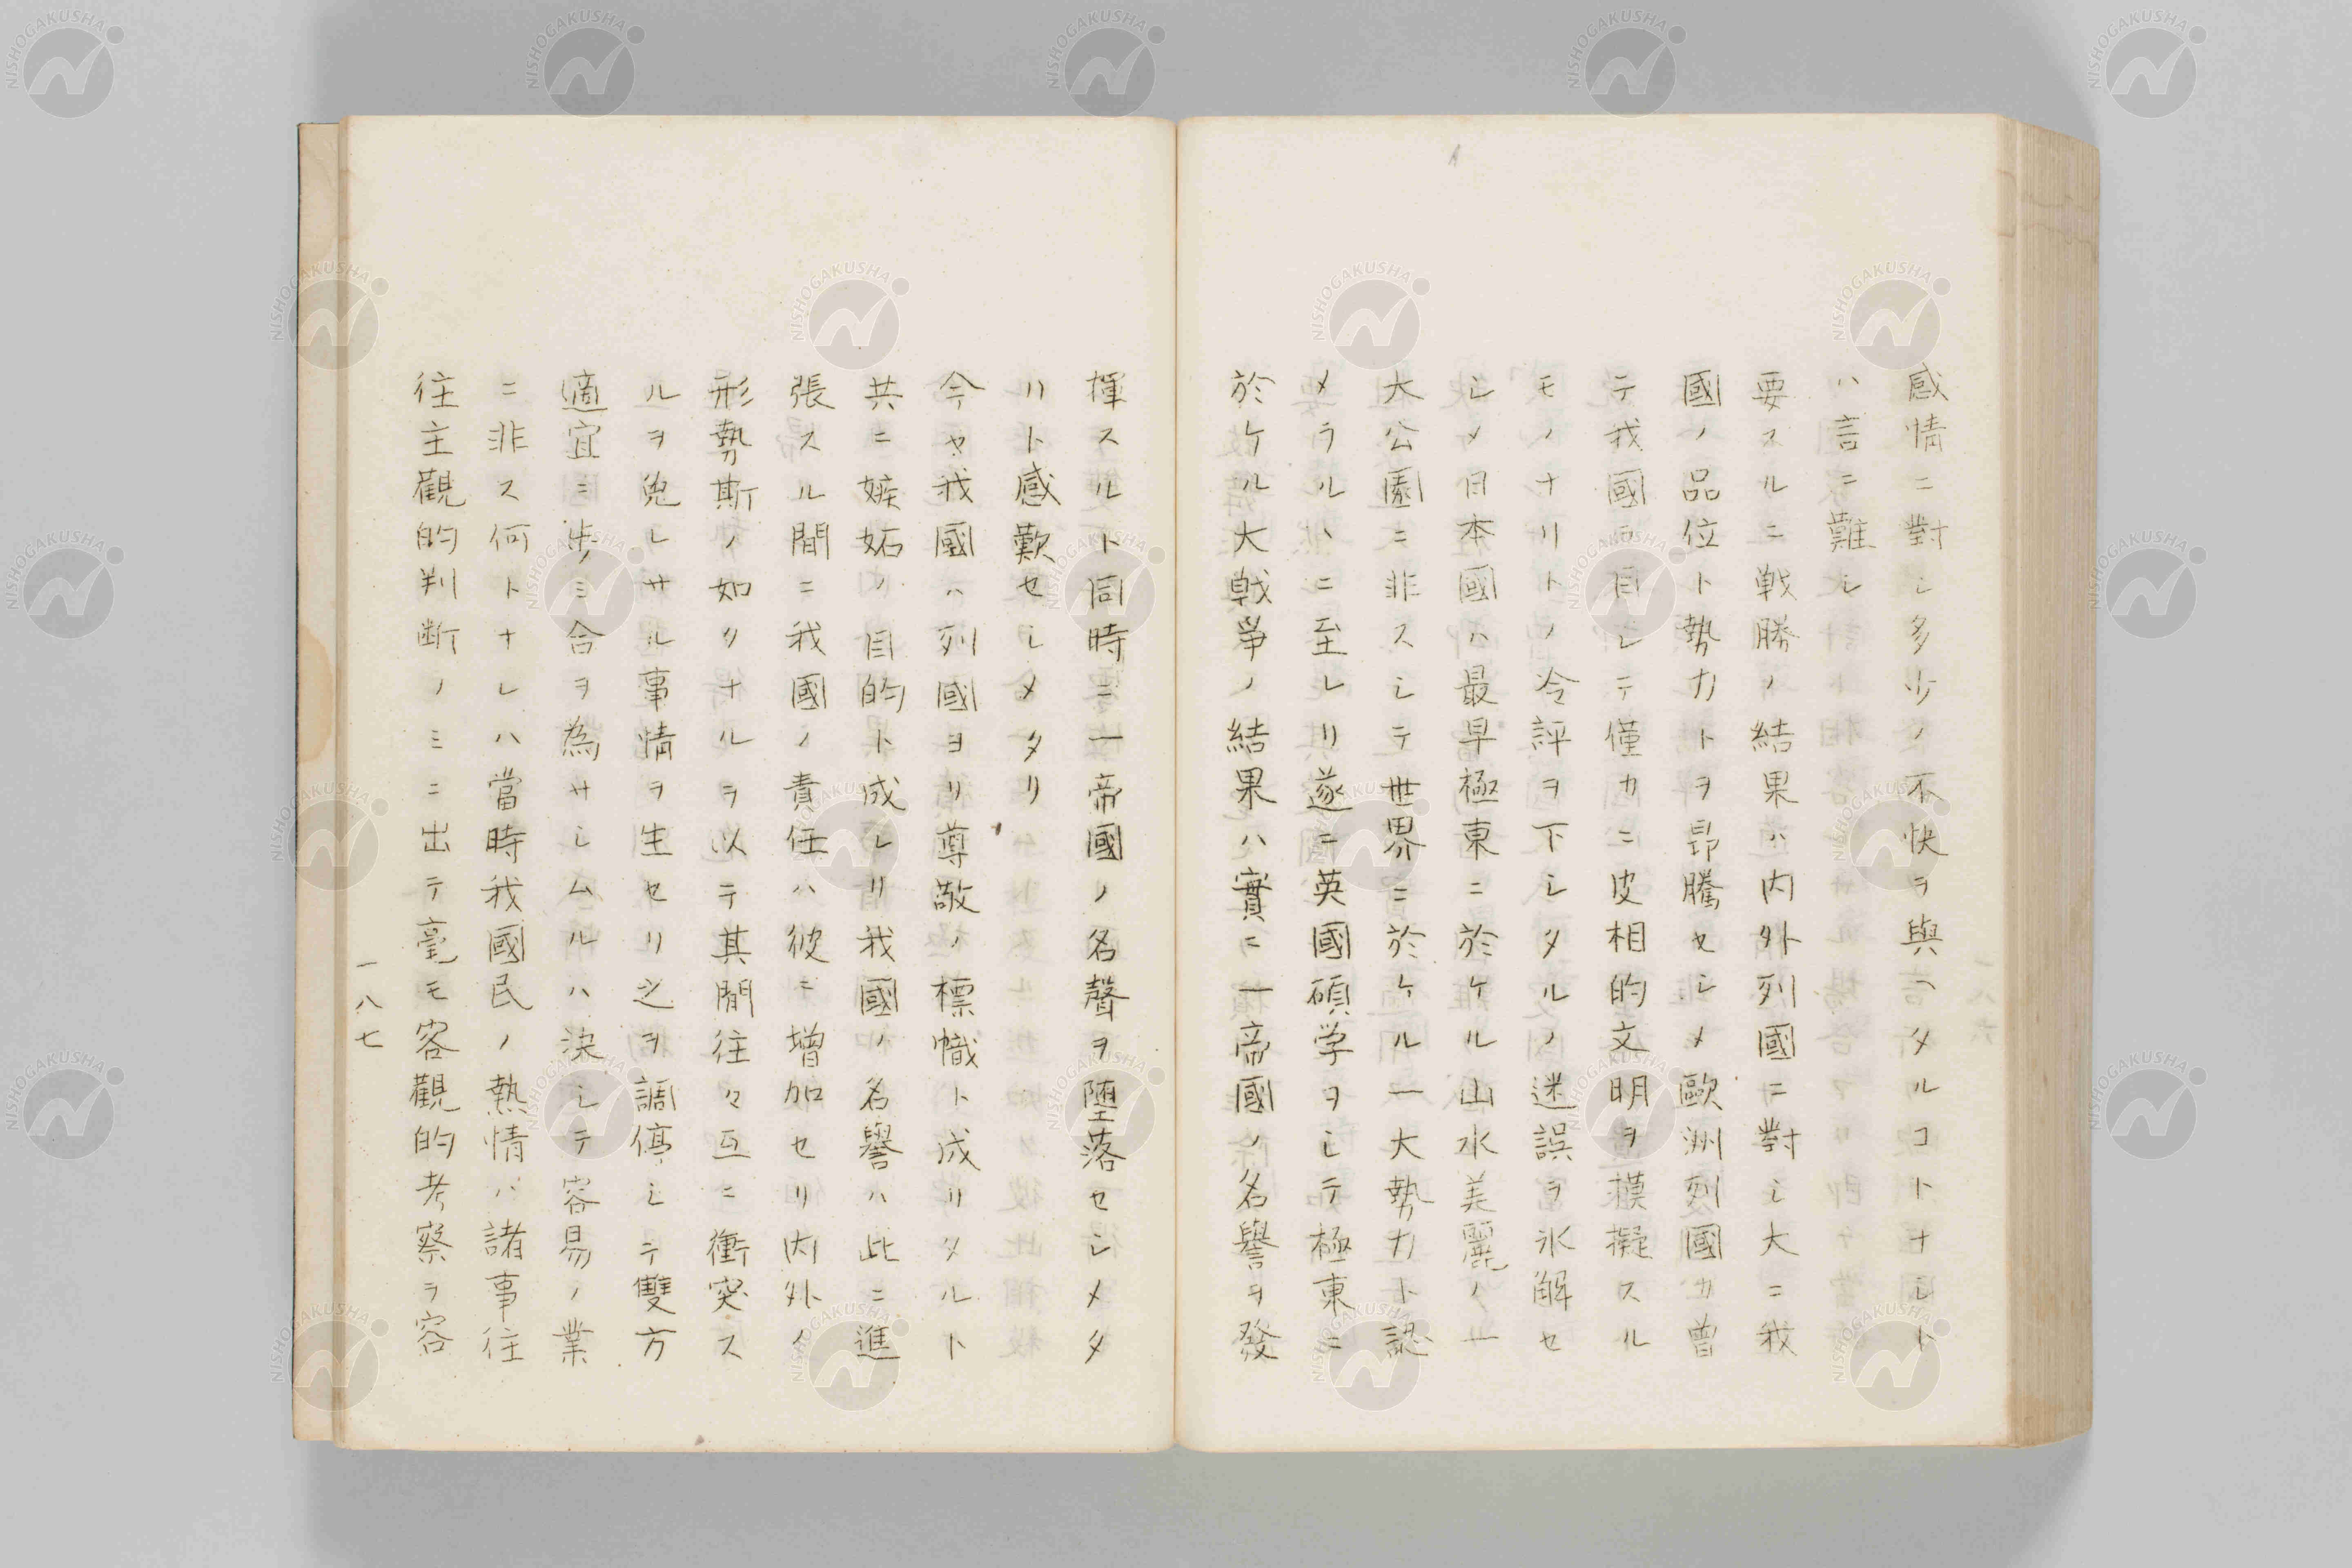 感情ニ對シ多少ノ不快ヲ與ヘタルコトナシト
ハ言ニ難シ
要スルニ戦勝ノ結果ハ内外列國ニ對シ大ニ我
國ノ品位ト勢力トヲ昂騰セシメ歐洲列國カ曽
テ我國ヲ目シテ僅カニ皮相的文明ヲ摸擬スル
モノナリトノ冷評ヲ下シタルノ迷誤ヲ氷解セ
シメ日本國ハ最早極東ニ於ケル山水美麗ノ一
大公園ニ非スシテ世界ニ於ケル一大勢力ト認
メラルヽニ至レリ遂ニ英國碩学ヲシテ極東ニ
於ケル大戦爭ノ結果ハ實ニ一帝國ノ名譽ヲ發
揮スルト同時ニ一帝國ノ名聲ヲ堕落セシメタ
リト感歎セシメタリ
今ヤ我國ハ列國ヨリ尊敬ノ標幟ト成リタルト
共ニ嫉妬ノ目的ト成レリ我國ノ名譽ハ此ニ進
張スル間ニ我國ノ責任ハ彼ニ増加セリ内外ノ
形勢斯ノ如クナルヲ以テ其間往々互ニ衝突ス
ルヲ免レサル事情ヲ生セリ之ヲ調停シテ雙方
適宜ニ歩ミ合ヲ為サシムルハ決シテ容易ノ業
ニ非ス何トナレハ當時我國民ノ熱情ハ諸事往
往主觀的判断ノミニ出テ毫モ客觀的考察ヲ容
一八七
NISHOGAKUSHA